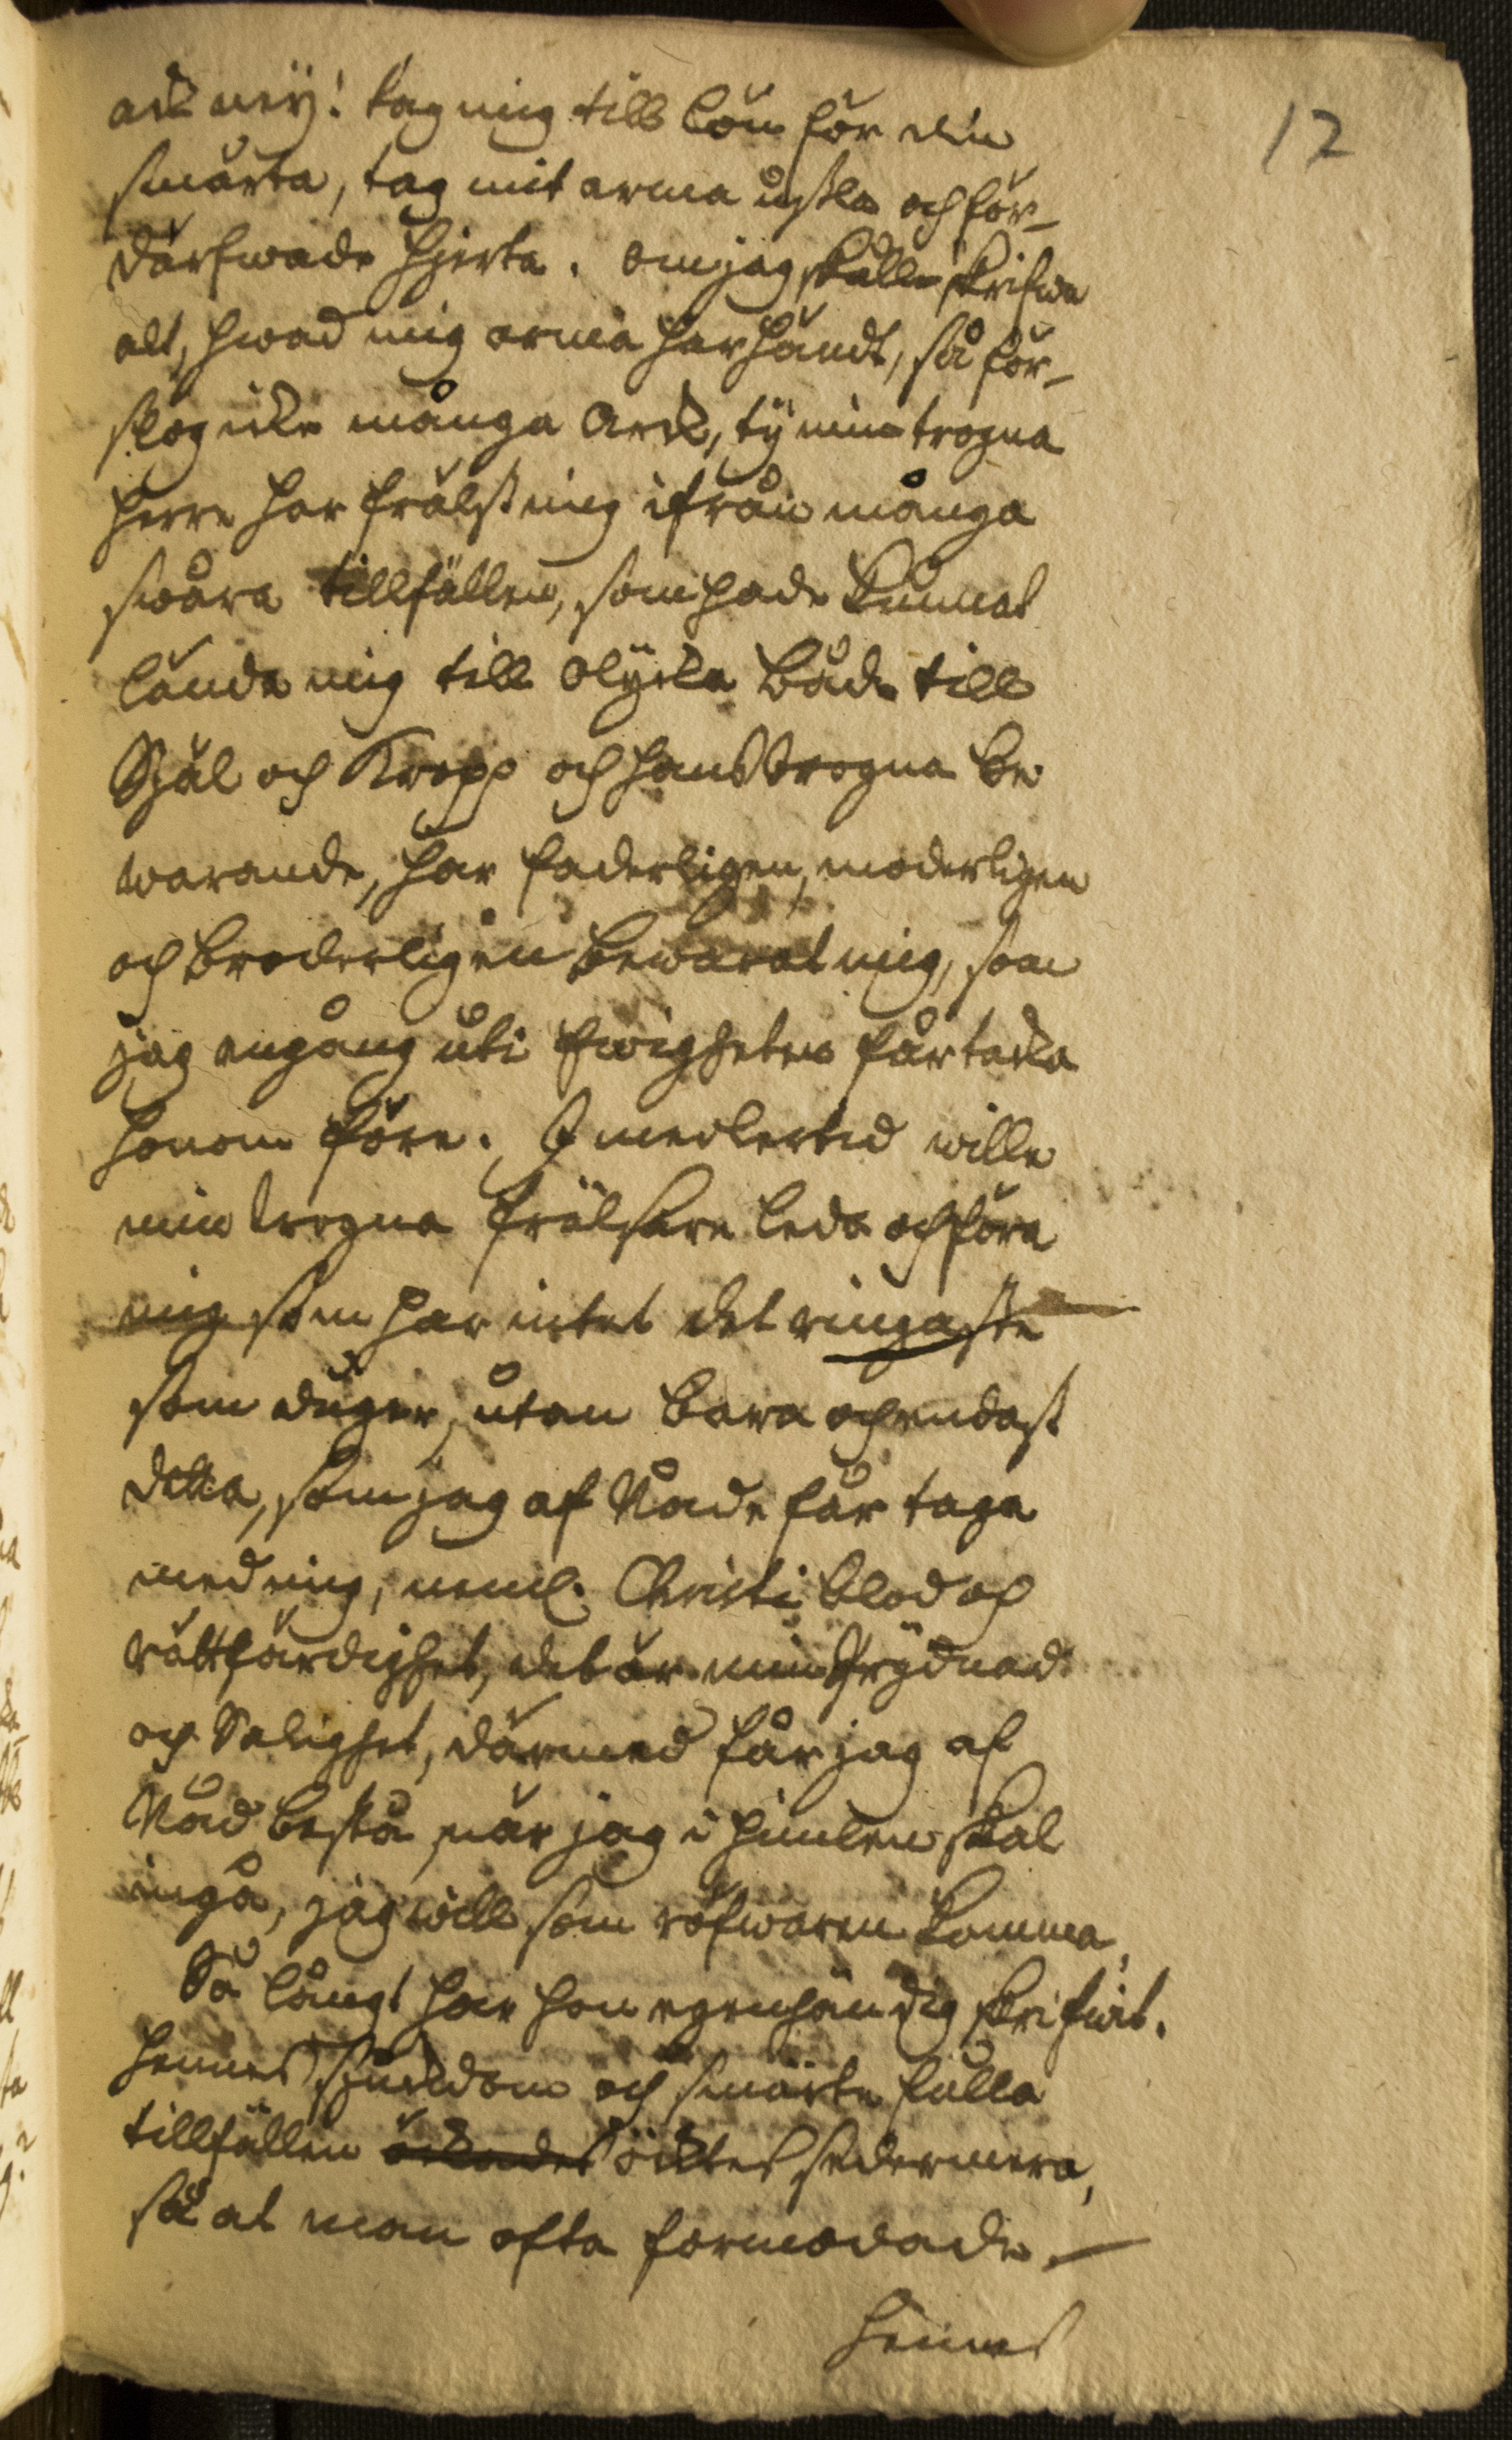 12
ack nej! tag mig till lön för din
smärta, tag mit arma usla och för-
därfwade hjerta. Om jag skulle skrifwa
alt, hwad mig arma har händt, så för-
slog icke många Arck, ty min trogna
Herre har frälst mig ifrån många
swåra tillfällen, som hade kunnat
lända mig till olycka både till
Själ och Kropp och hans trogna be
warande, har faderligen, moderligen
och broderligen bewarat mig, som
jag engång uti Ewigheten får tacka
honom före. Imedlertid wille
min trogna Frälsare leda och föra
mig som har intet det ringaste
som duger, utan bara och endast
detta, som jag af Nåde får taga
med mig, neml. Christi blod och
rättfärdighet, det är min Prydnad
och Salighet, därmed får jag af
Nåd bestå, när jag i himlen skal
ingå, jag will som röfwaren komma,
Så långt har hon egenhändig skrifwit.
Hennes sjukdom och smärte fulla
tillfällen öckades öcktes sedermera,
så at man ofta formodade
hennes